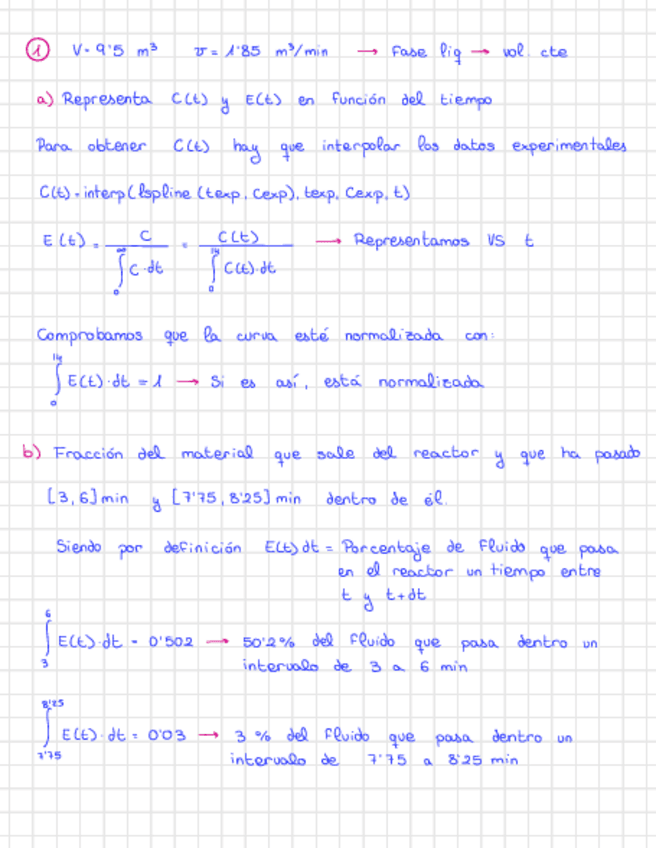 ① V = 9'5 m³ v = 1'85 m³/min → Fase liq → vol. cte
a) Representa C(t) y E(t) en función del tiempo
Para obtener C(t) hay que interpolar los datos experimentales
C(t) = interp(lspline (texp, Cexp), texp, Cexp, t)
E(t) = C / ∫₀^∞ C·dt = C(t) / ∫₀^14 C(t)·dt → Representamos VS t
Comprobamos que la curva esté normalizada con:
∫₀^14 E(t)·dt = 1 → Si es así, está normalizada
b) Fracción del material que sale del reactor y que ha pasado
[3,6] min y [7'75, 8'25] min dentro de él.
Siendo por definición E(t)dt = Porcentaje de fluido que pasa
en el reactor un tiempo entre
t y t+dt
∫₃^6 E(t)·dt = 0'502 → 50'2% del fluido que pasa dentro un
intervalo de 3 a 6 min
∫_7'75^8'25 E(t)·dt = 0'03 → 3 % del fluido que pasa dentro un
intervalo de 7'75 a 8'25 min